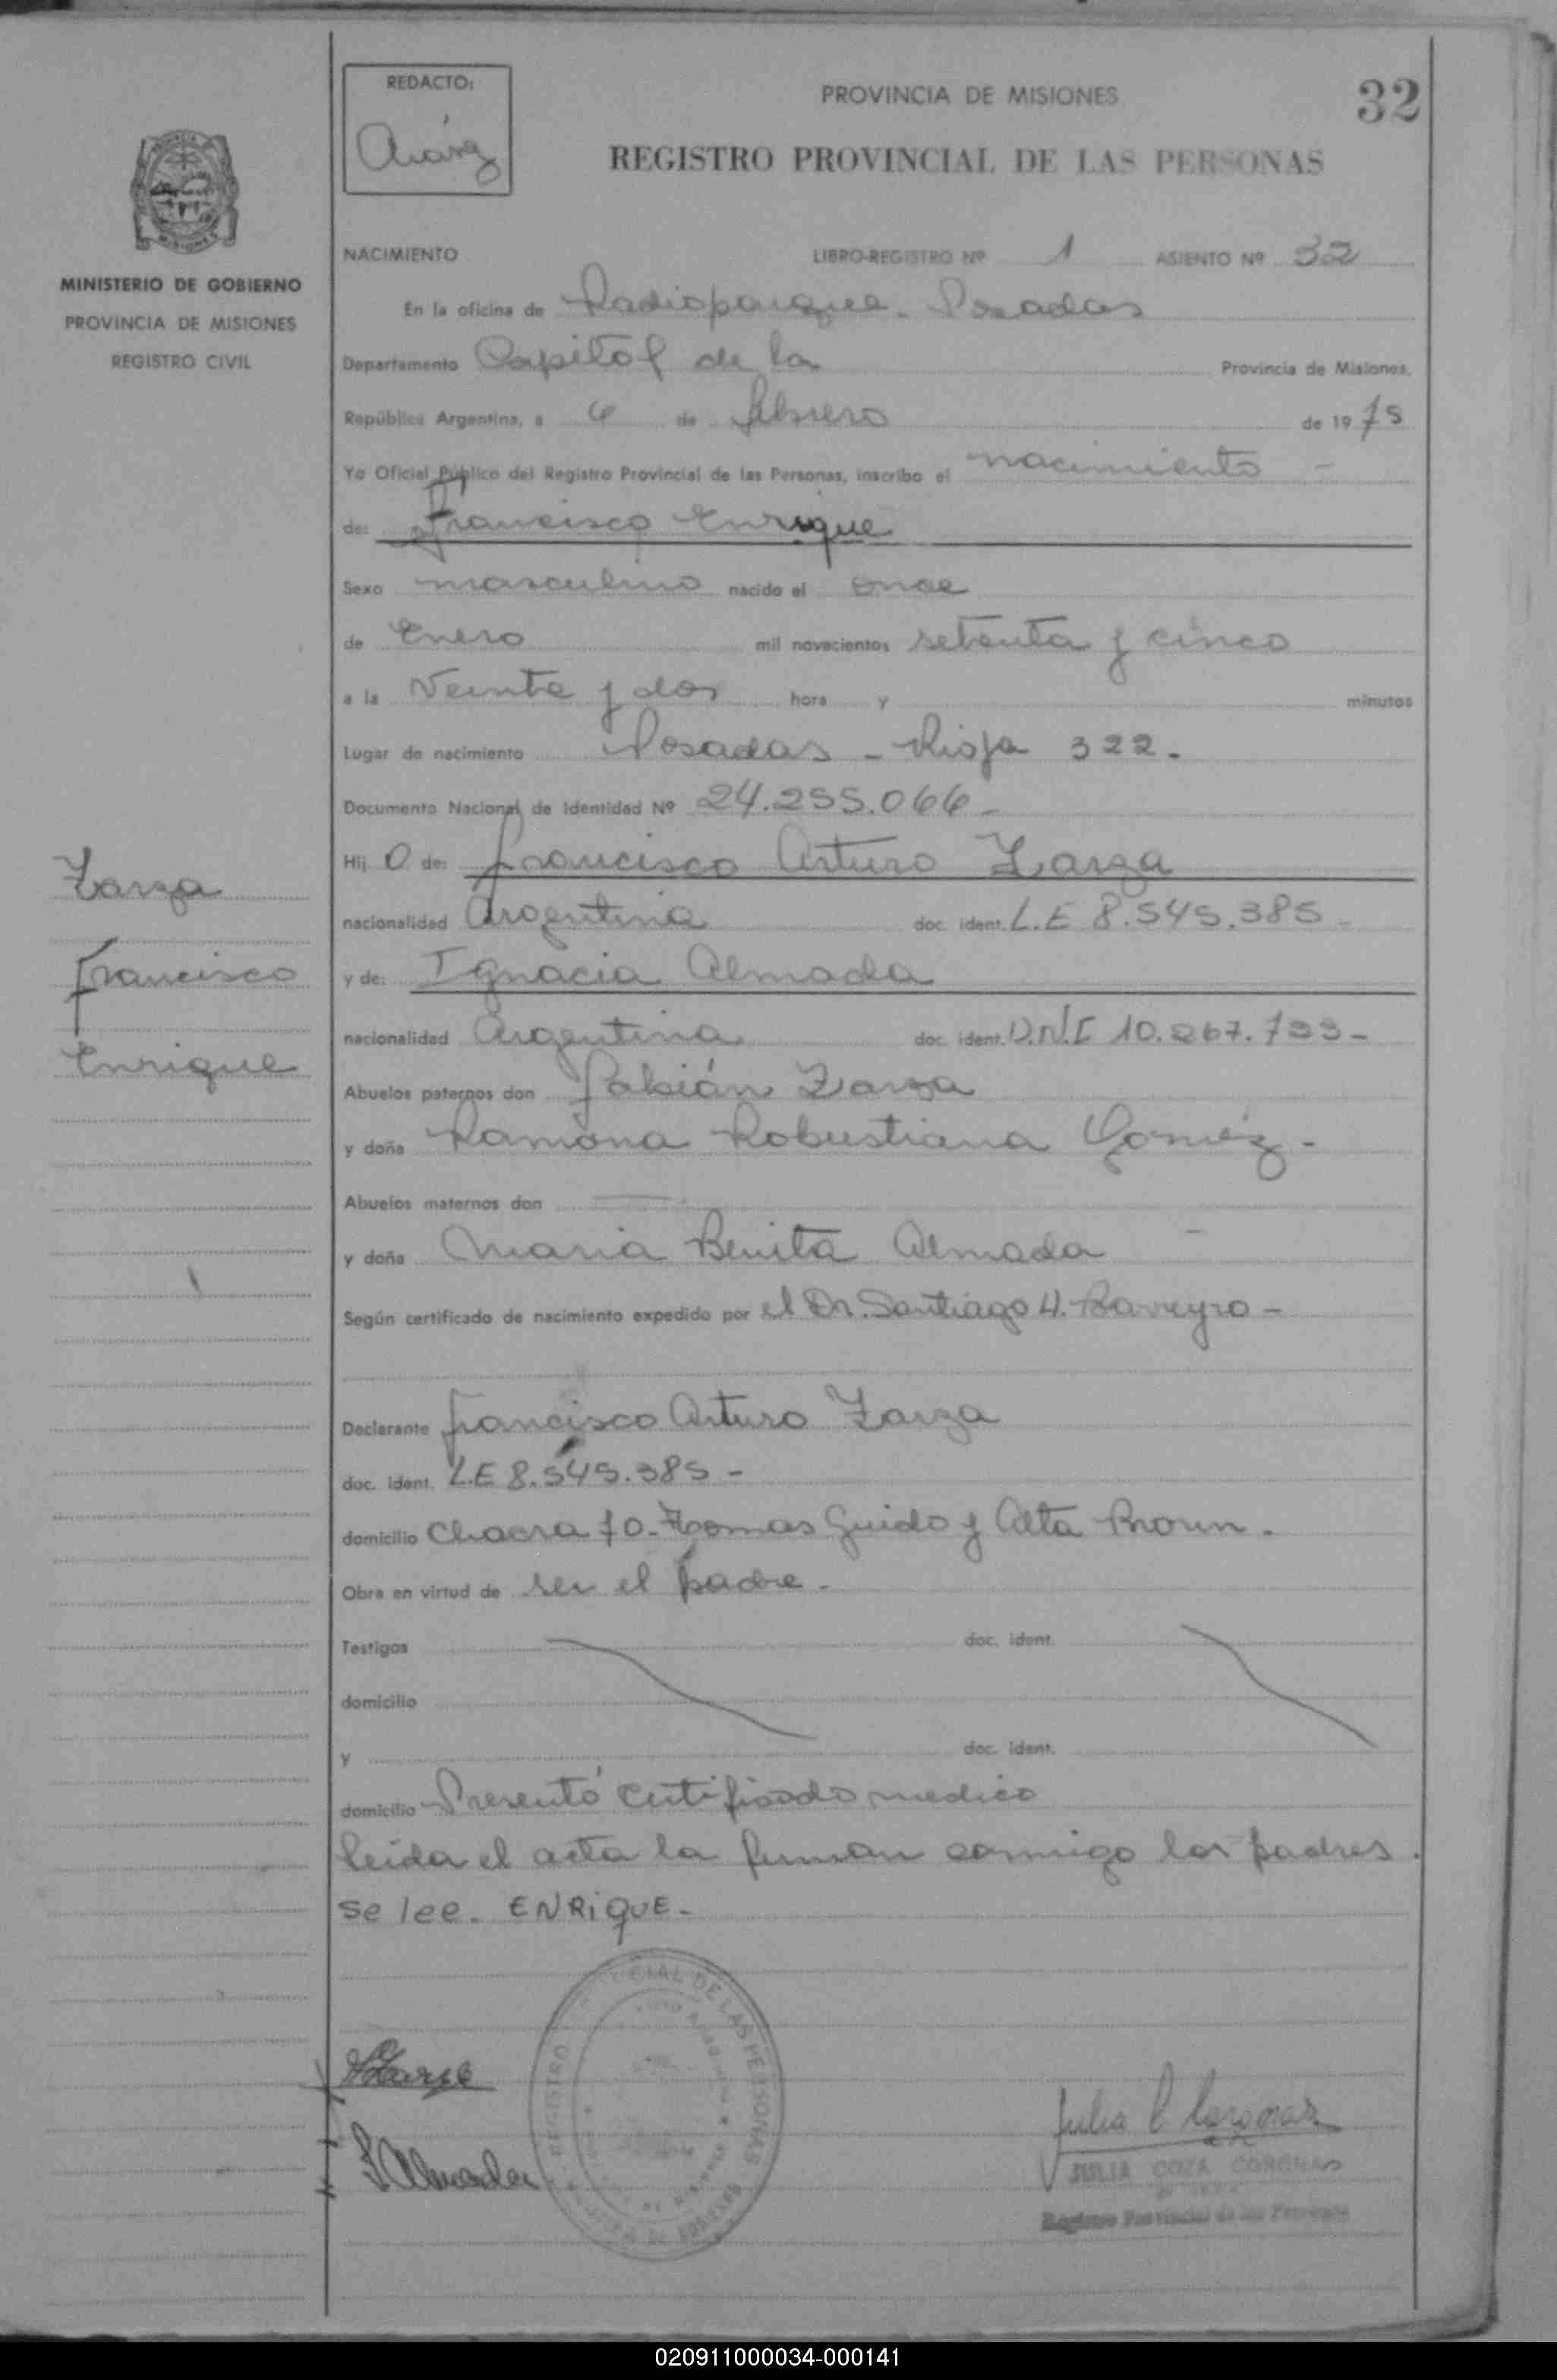 REDACTO:
PROVINCIA DE MISIONES
32
REGISTRO PROVINCIAL DE LAS PERSONAS
MINISTERIO DE GOBIERNO
PROVINCIA DE MISIONES
REGISTRO CIVIL
NACIMIENTO LIBRO-REGISTRO Nº 1 ASIENTO Nº 32
En la oficina de Radioparque - Posadas
Departamento Capital de la Provincia de Misiones,
República Argentina, a 6 de febrero de 1975
Yo Oficial Público del Registro Provincial de las Personas, inscribo el nacimiento -
de: Francisco Enrique
Sexo masculino nacido el once
de Enero mil novecientos setenta y cinco
a la Veinte y dos hora y minutos
Lugar de nacimiento Posadas - Rioja 322 -
Documento Nacional de Identidad Nº 24.255.066 -
Hij o de: Francisco Arturo Zarza
nacionalidad Argentina doc. ident. L.E 8.545.385 -
y de: Ignacia Almada
nacionalidad Argentina doc. ident. D.N.I 10.267.733 -
Zarza
Francisco
Enrique
Abuelos paternos don Fabián Zarza
y doña Ramona Robustiana Goméz -
Abuelos maternos don
y doña Maria Benita Almada -
Según certificado de nacimiento expedido por el Dr. Santiago H. Barreyro -
Declarante Francisco Arturo Zarza
doc. ident. L.E 8.545.385 -
domicilio Chacra 70 - Tomas Guido y Alte Brown .
Obra en virtud de ser el padre .
Testigos doc. ident.
domicilio
y doc. ident.
domicilio Presentó certificado medico
leida el acta la firman conmigo los padres .
se lee - ENRIQUE -
Zarza
I Almada
REGISTRO PROVINCIAL DE LAS PERSONAS
MINISTERIO DE GOBIERNO
Julia C Coronas
JULIA COZA CORONAS
Registro Provincial de las Personas
020911000034-000141